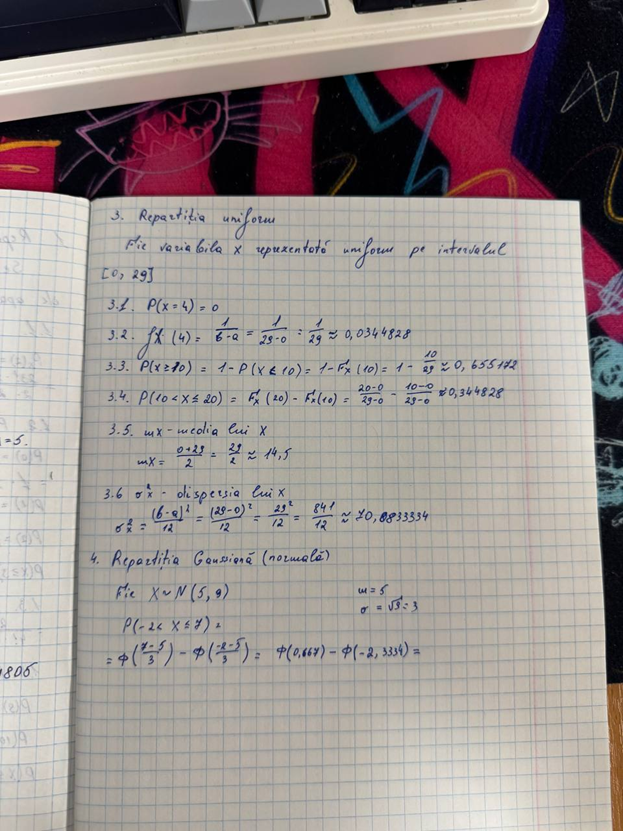 3. Repartiția uniform
Fie variabila X reprezentată uniform pe intervalul
[0, 29]
3.1. P(x=4) = 0
3.2. fX(4) = 1/(b-a) = 1/(29-0) = 1/29 ≈ 0,0344828
3.3. P(x≥10) = 1 - P(x<10) = 1 - Fx(10) = 1 - 10/29 ≈ 0,655172
3.4. P(10<x≤20) = Fx(20) - Fx(10) = (20-0)/(29-0) - (10-0)/(29-0) ≈ 0,344828
3.5. mx - media lui X
mx = (0+29)/2 = 29/2 ≈ 14,5
3.6 σ²x - dispersia lui X
σ²x = (b-a)²/12 = (29-0)²/12 = 29²/12 = 841/12 ≈ 70,0833334
4. Repartiția Gaussiană (normală)
Fie X~N(5,9)
m=5
σ=√9=3
P(-2<X≤7) =
= Φ((7-5)/3) - Φ((-2-5)/3) = Φ(0,667) - Φ(-2,3334) =
=5.
1805